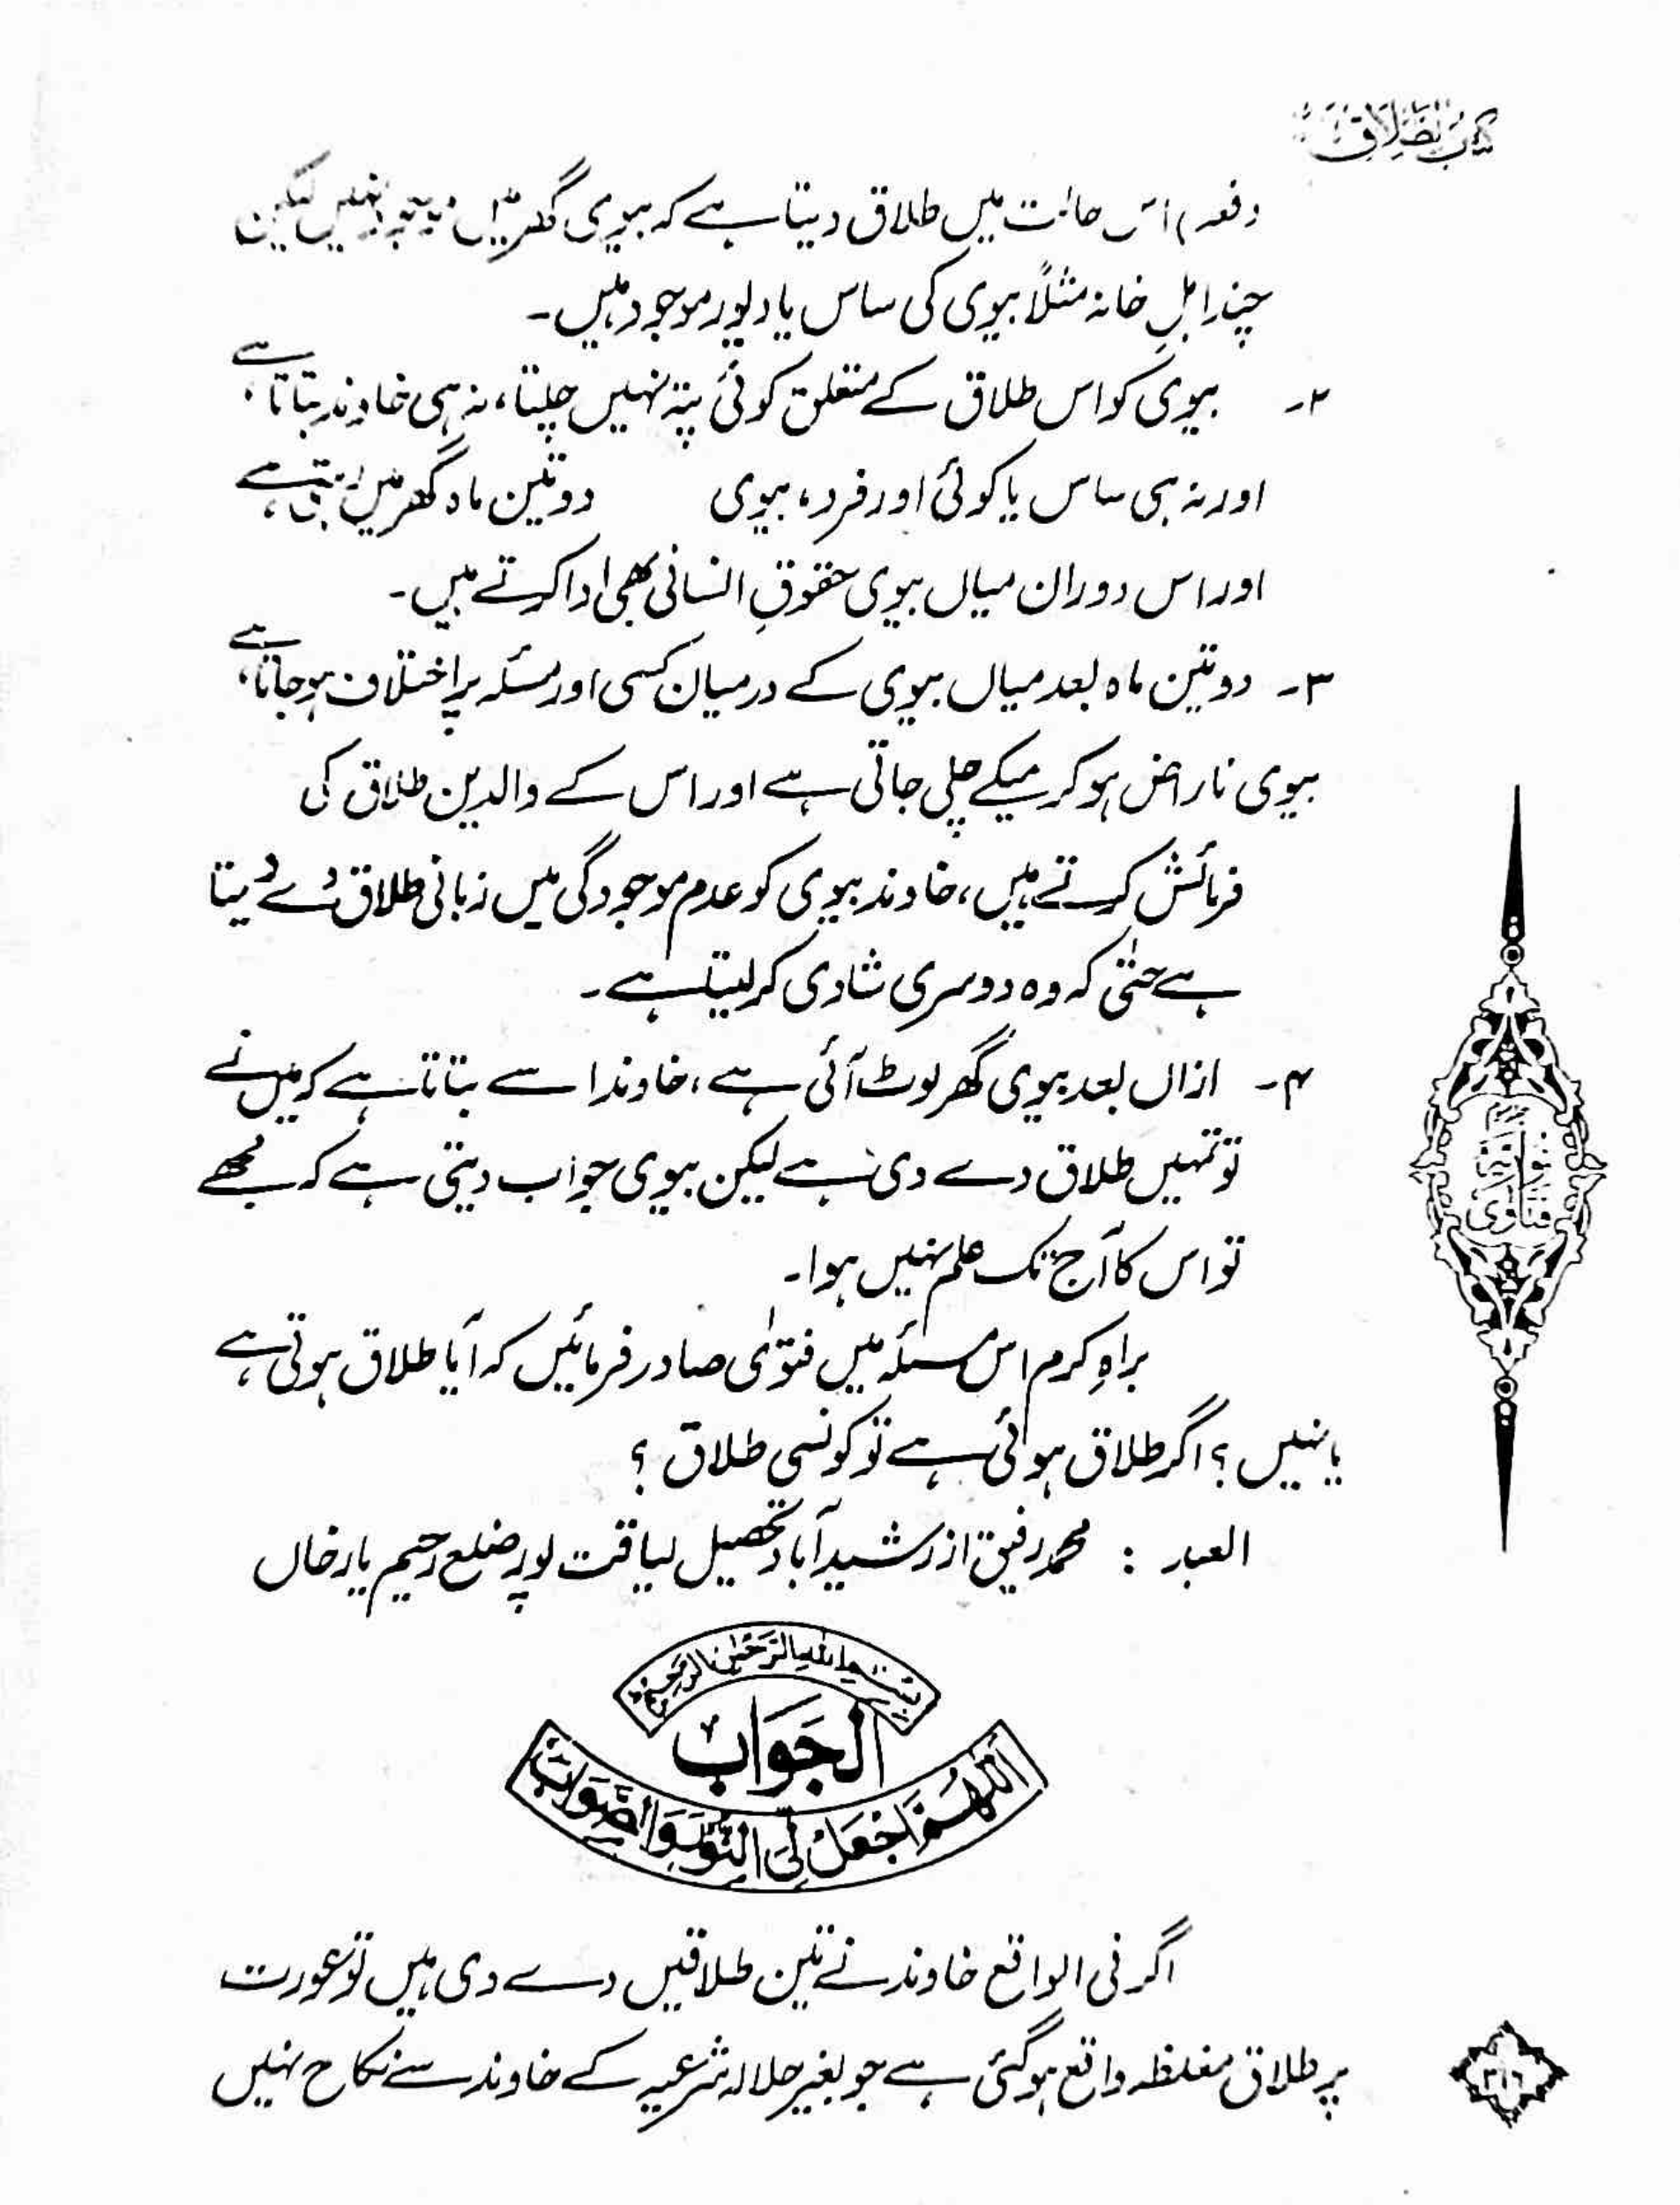 کتاب الطلاق
دفعہ) اس حالت میں طلاق دیتا ہے کہ بیوی گھر میں موجود نہیں لیکن
چند اہلِ خانہ مثلاً بیوی کی ساس یا دیور موجود ہیں۔
۲۔ بیوی کو اس طلاق کے متعلق کوئی پتہ نہیں چلتا، نہ ہی خاوند بتاتا ہے،
اور نہ ہی ساس یا کوئی اور فرد، بیوی دو تین ماہ گھر میں رہتی ہے،
اور اس دوران میاں بیوی حقوقِ انسانی بھی ادا کرتے ہیں۔
۳۔ دو تین ماہ بعد میاں بیوی کے درمیان کسی اور مسئلہ پر اختلاف ہو جاتا ہے،
بیوی ناراض ہو کر میکے چلی جاتی ہے اور اس کے والدین طلاق کی
فرمائش کرتے ہیں، خاوند بیوی کو عدم موجودگی میں زبانی طلاق دے دیتا
ہے حتٰی کہ وہ دوسری شادی کر لیتا ہے۔
۴۔ ازاں بعد بیوی گھر لوٹ آئی ہے، خاوند اسے بتاتا ہے کہ میں نے
تو تمہیں طلاق دے دی ہے لیکن بیوی جواب دیتی ہے کہ مجھے
تو اس کا آج تک علم نہیں ہوا۔
براہِ کرم اس مسئلہ میں فتوٰی صادر فرمائیں کہ آیا طلاق ہوتی ہے،
یا نہیں؟ اگر طلاق ہوئی ہے تو کونسی طلاق؟
العبد : محمد رفیق از رشید آباد تحصیل لیاقت پور ضلع رحیم یار خاں
بسم الله الرحمن الرحيم
الجَوَابُ
اللهم اجعل لي النور والصواب
اگر فی الواقع خاوند نے تین طلاقیں دے دی ہیں تو عورت
پر طلاق مغلظہ واقع ہو گئی ہے جو بغیر حلالہ شرعیہ کے خاوند سے نکاح نہیں
فتاوی نوریہ